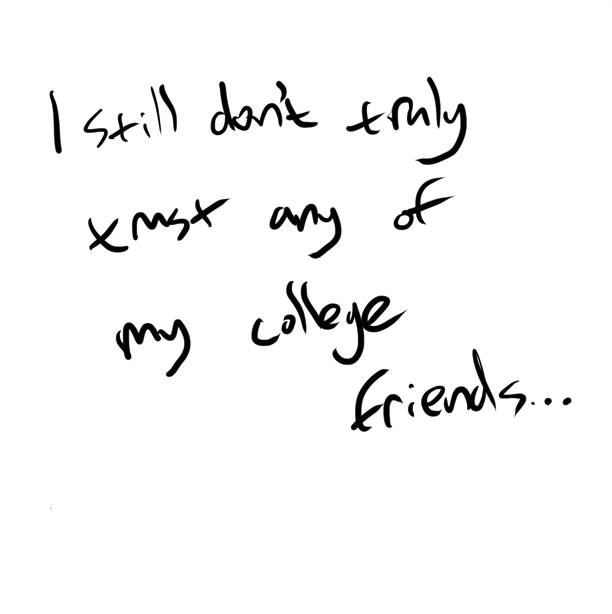 I still don't truly
trust any of
my college
friends...